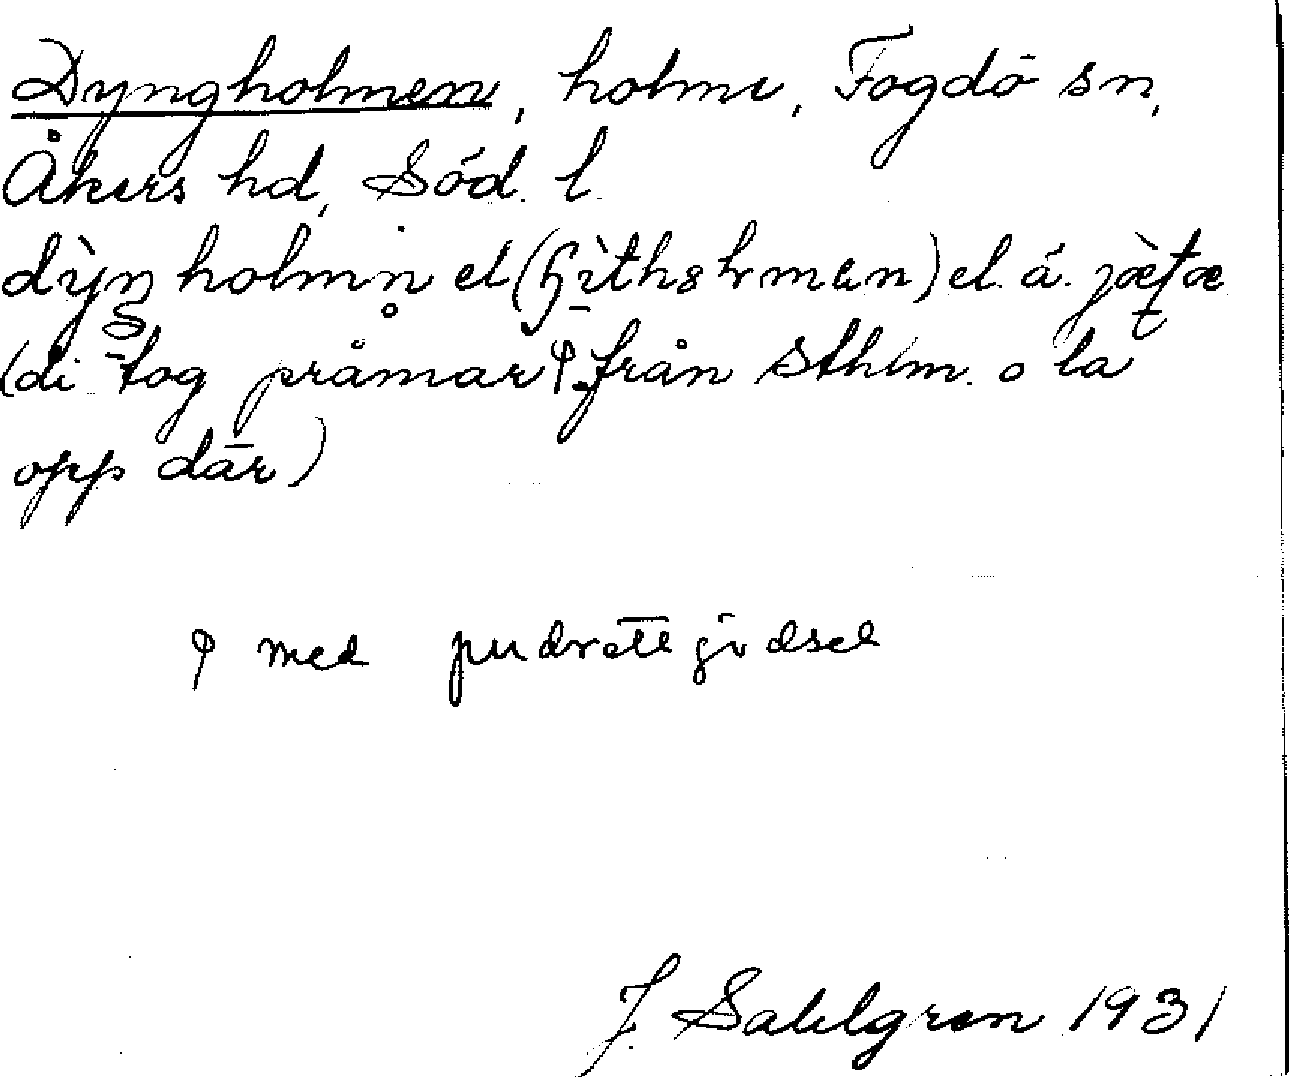 Dyngholmen, holme, Fogdö sn,
Åkers hd, Söd. l.
holmn̥ el ( ) el. å.
(di tog pråmar φ från Sthlm. o la
opp där)
φ med pudrettgödsel
J. Sahlgren 1931